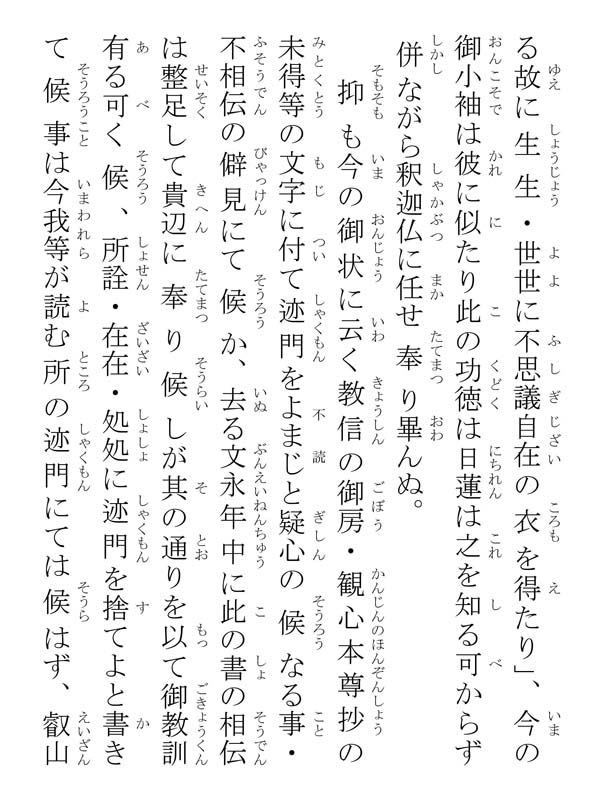 る故に生生・世世に不思議自在の衣を得たり」、今の
御小袖は彼に似たり此の功徳は日蓮は之を知る可からず
併ながら釈迦仏に任せ奉り畢んぬ。
抑も今の御状に云く教信の御房・観心本尊抄の
未得等の文字に付て迹門をよまじと疑心の候なる事・
不相伝の僻見にて候か、去る文永年中に此の書の相伝
は整足して貴辺に奉り候しが其の通りを以て御教訓
有る可く候、所詮・在在・処処に迹門を捨てよと書き
て候事は今我等が読む所の迹門にては候はず、叡山